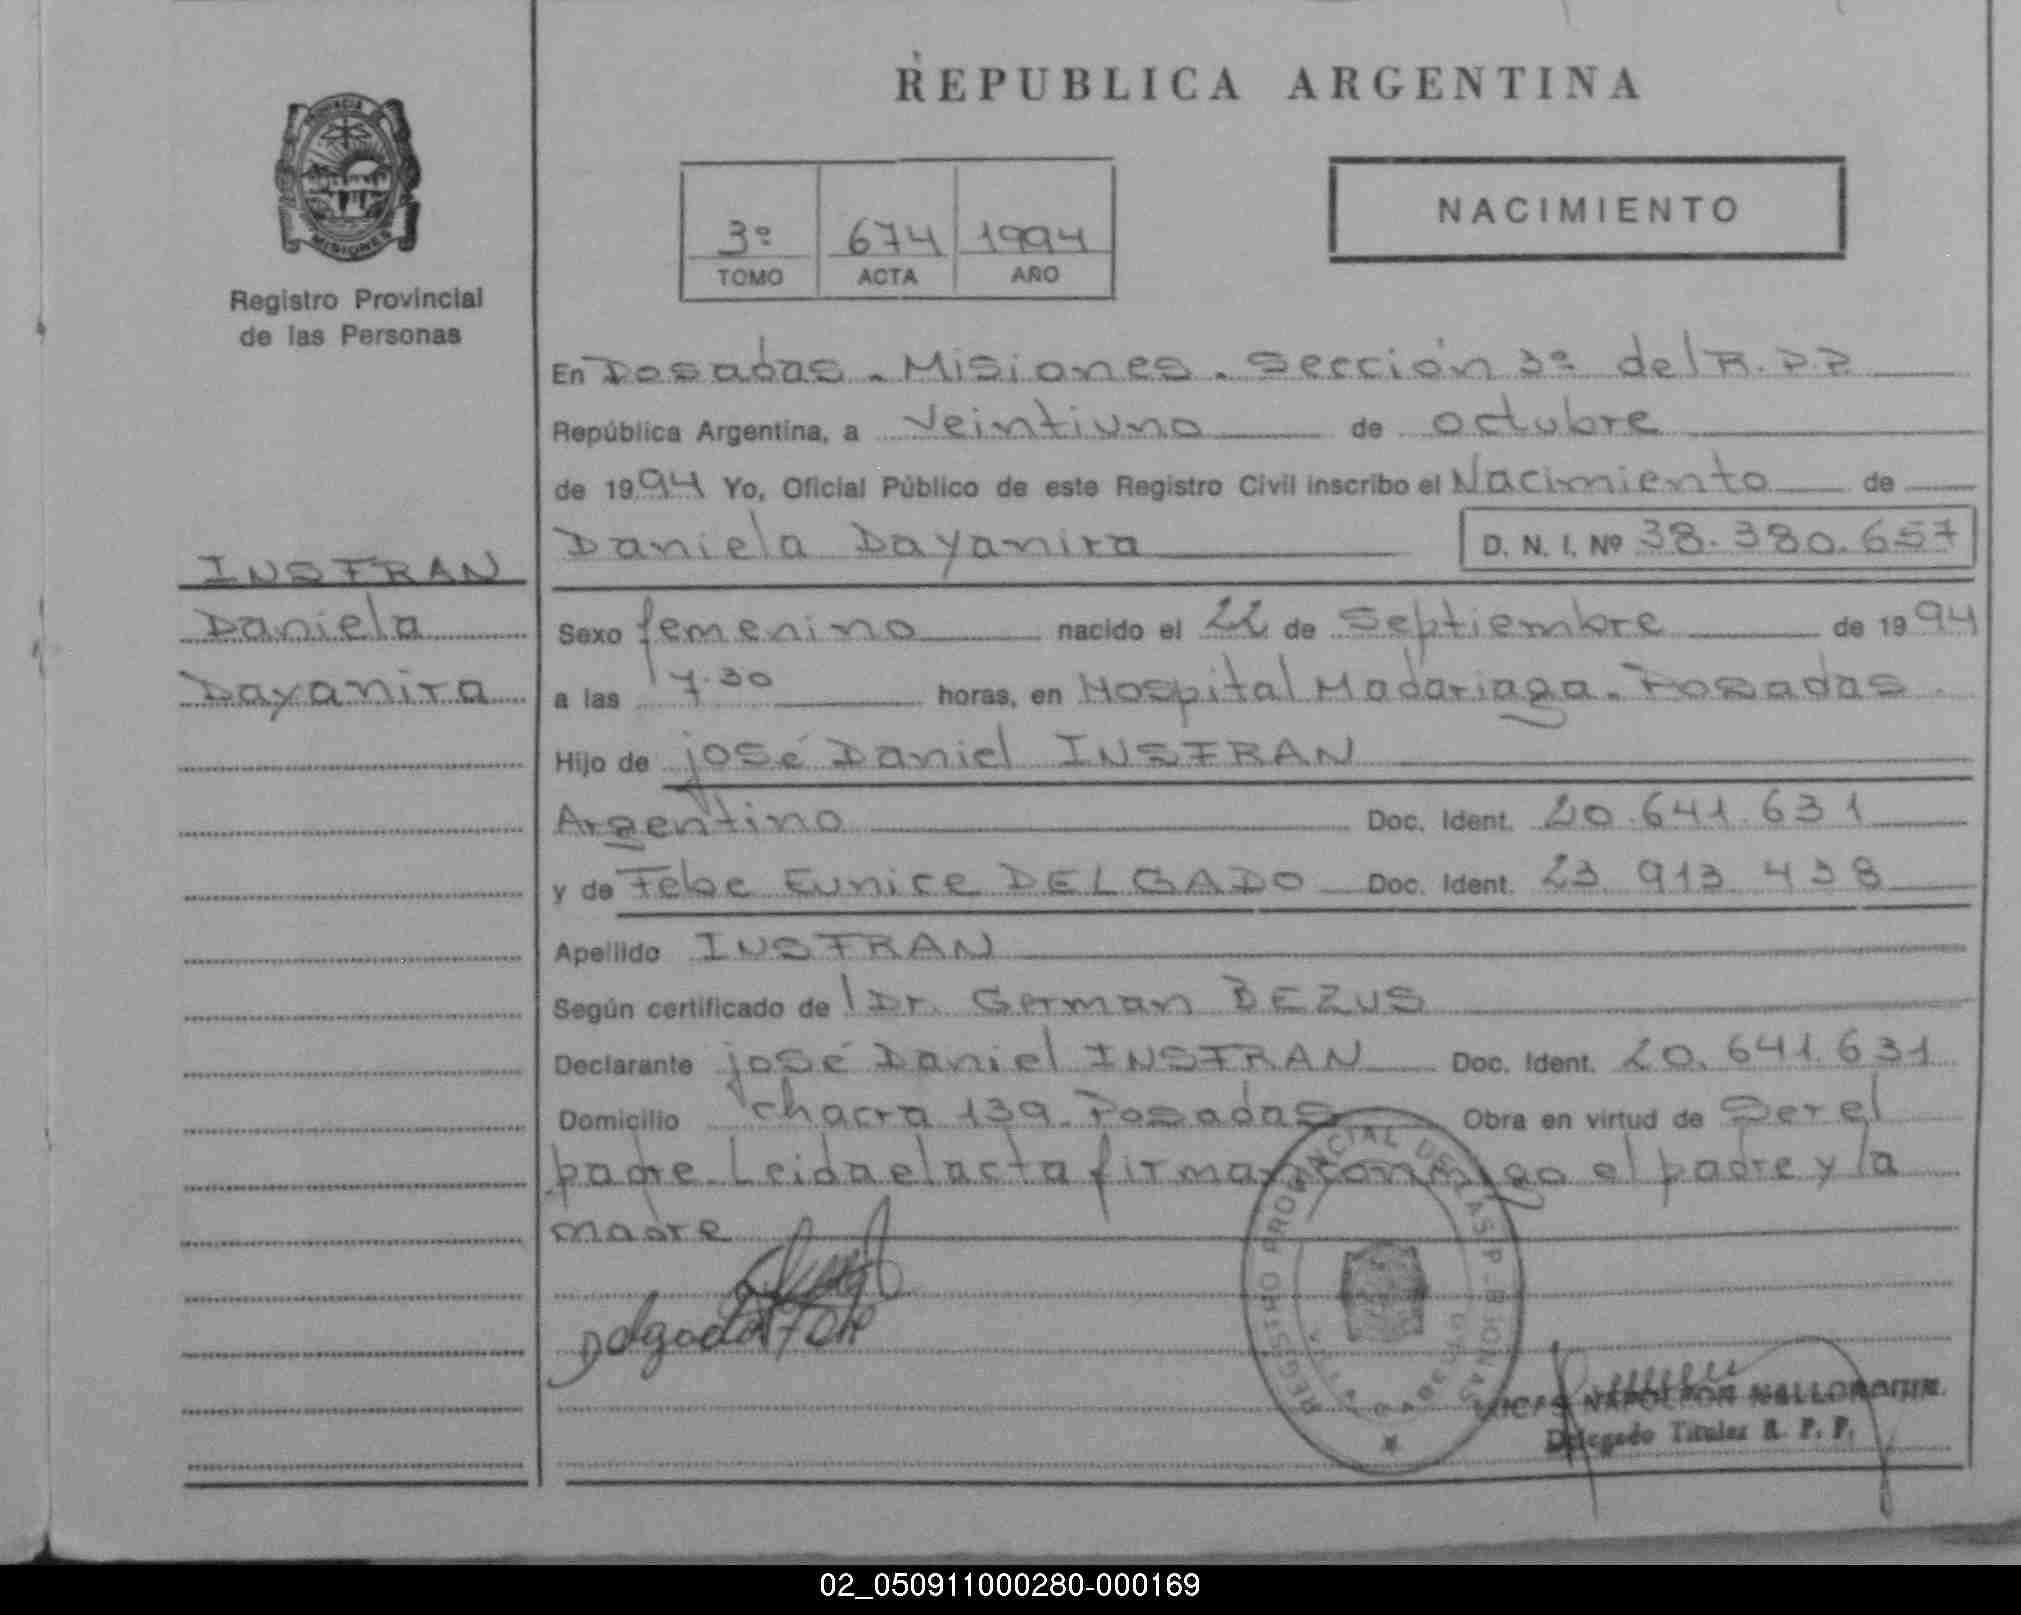 REPUBLICA ARGENTINA
PROVINCIA
MISIONES
Registro Provincial
de las Personas
3º 674 1994
TOMO ACTA AÑO
NACIMIENTO
En Posadas - Misiones - Sección 3ª del R.P.P.
República Argentina, a Veintiuno de octubre
de 1994 Yo, Oficial Público de este Registro Civil inscribo el Nacimiento de
Daniela Dayanira D. N. I. Nº 38.380.657
INSFRAN
Daniela
Dayanira
Sexo femenino nacido el 22 de Septiembre de 1994
a las 17.30 horas, en Hospital Madariaga - Posadas
Hijo de josé Daniel INSFRAN
Argentino Doc. Ident. 20.641.631
y de Febe Eunice DELGADO Doc. Ident. 23 913 438
Apellido INSFRAN
Según certificado de Dr. German BEZUS
Declarante josé Daniel INSFRAN Doc. Ident. 20.641.631
Domicilio chacra 139 - Posadas Obra en virtud de Ser el
padre - Leida el acta firman conmigo el padre y la
madre
REGISTRO PROVINCIAL DE LAS P.
Delegado Titular R. P. P.
02_050911000280-000169